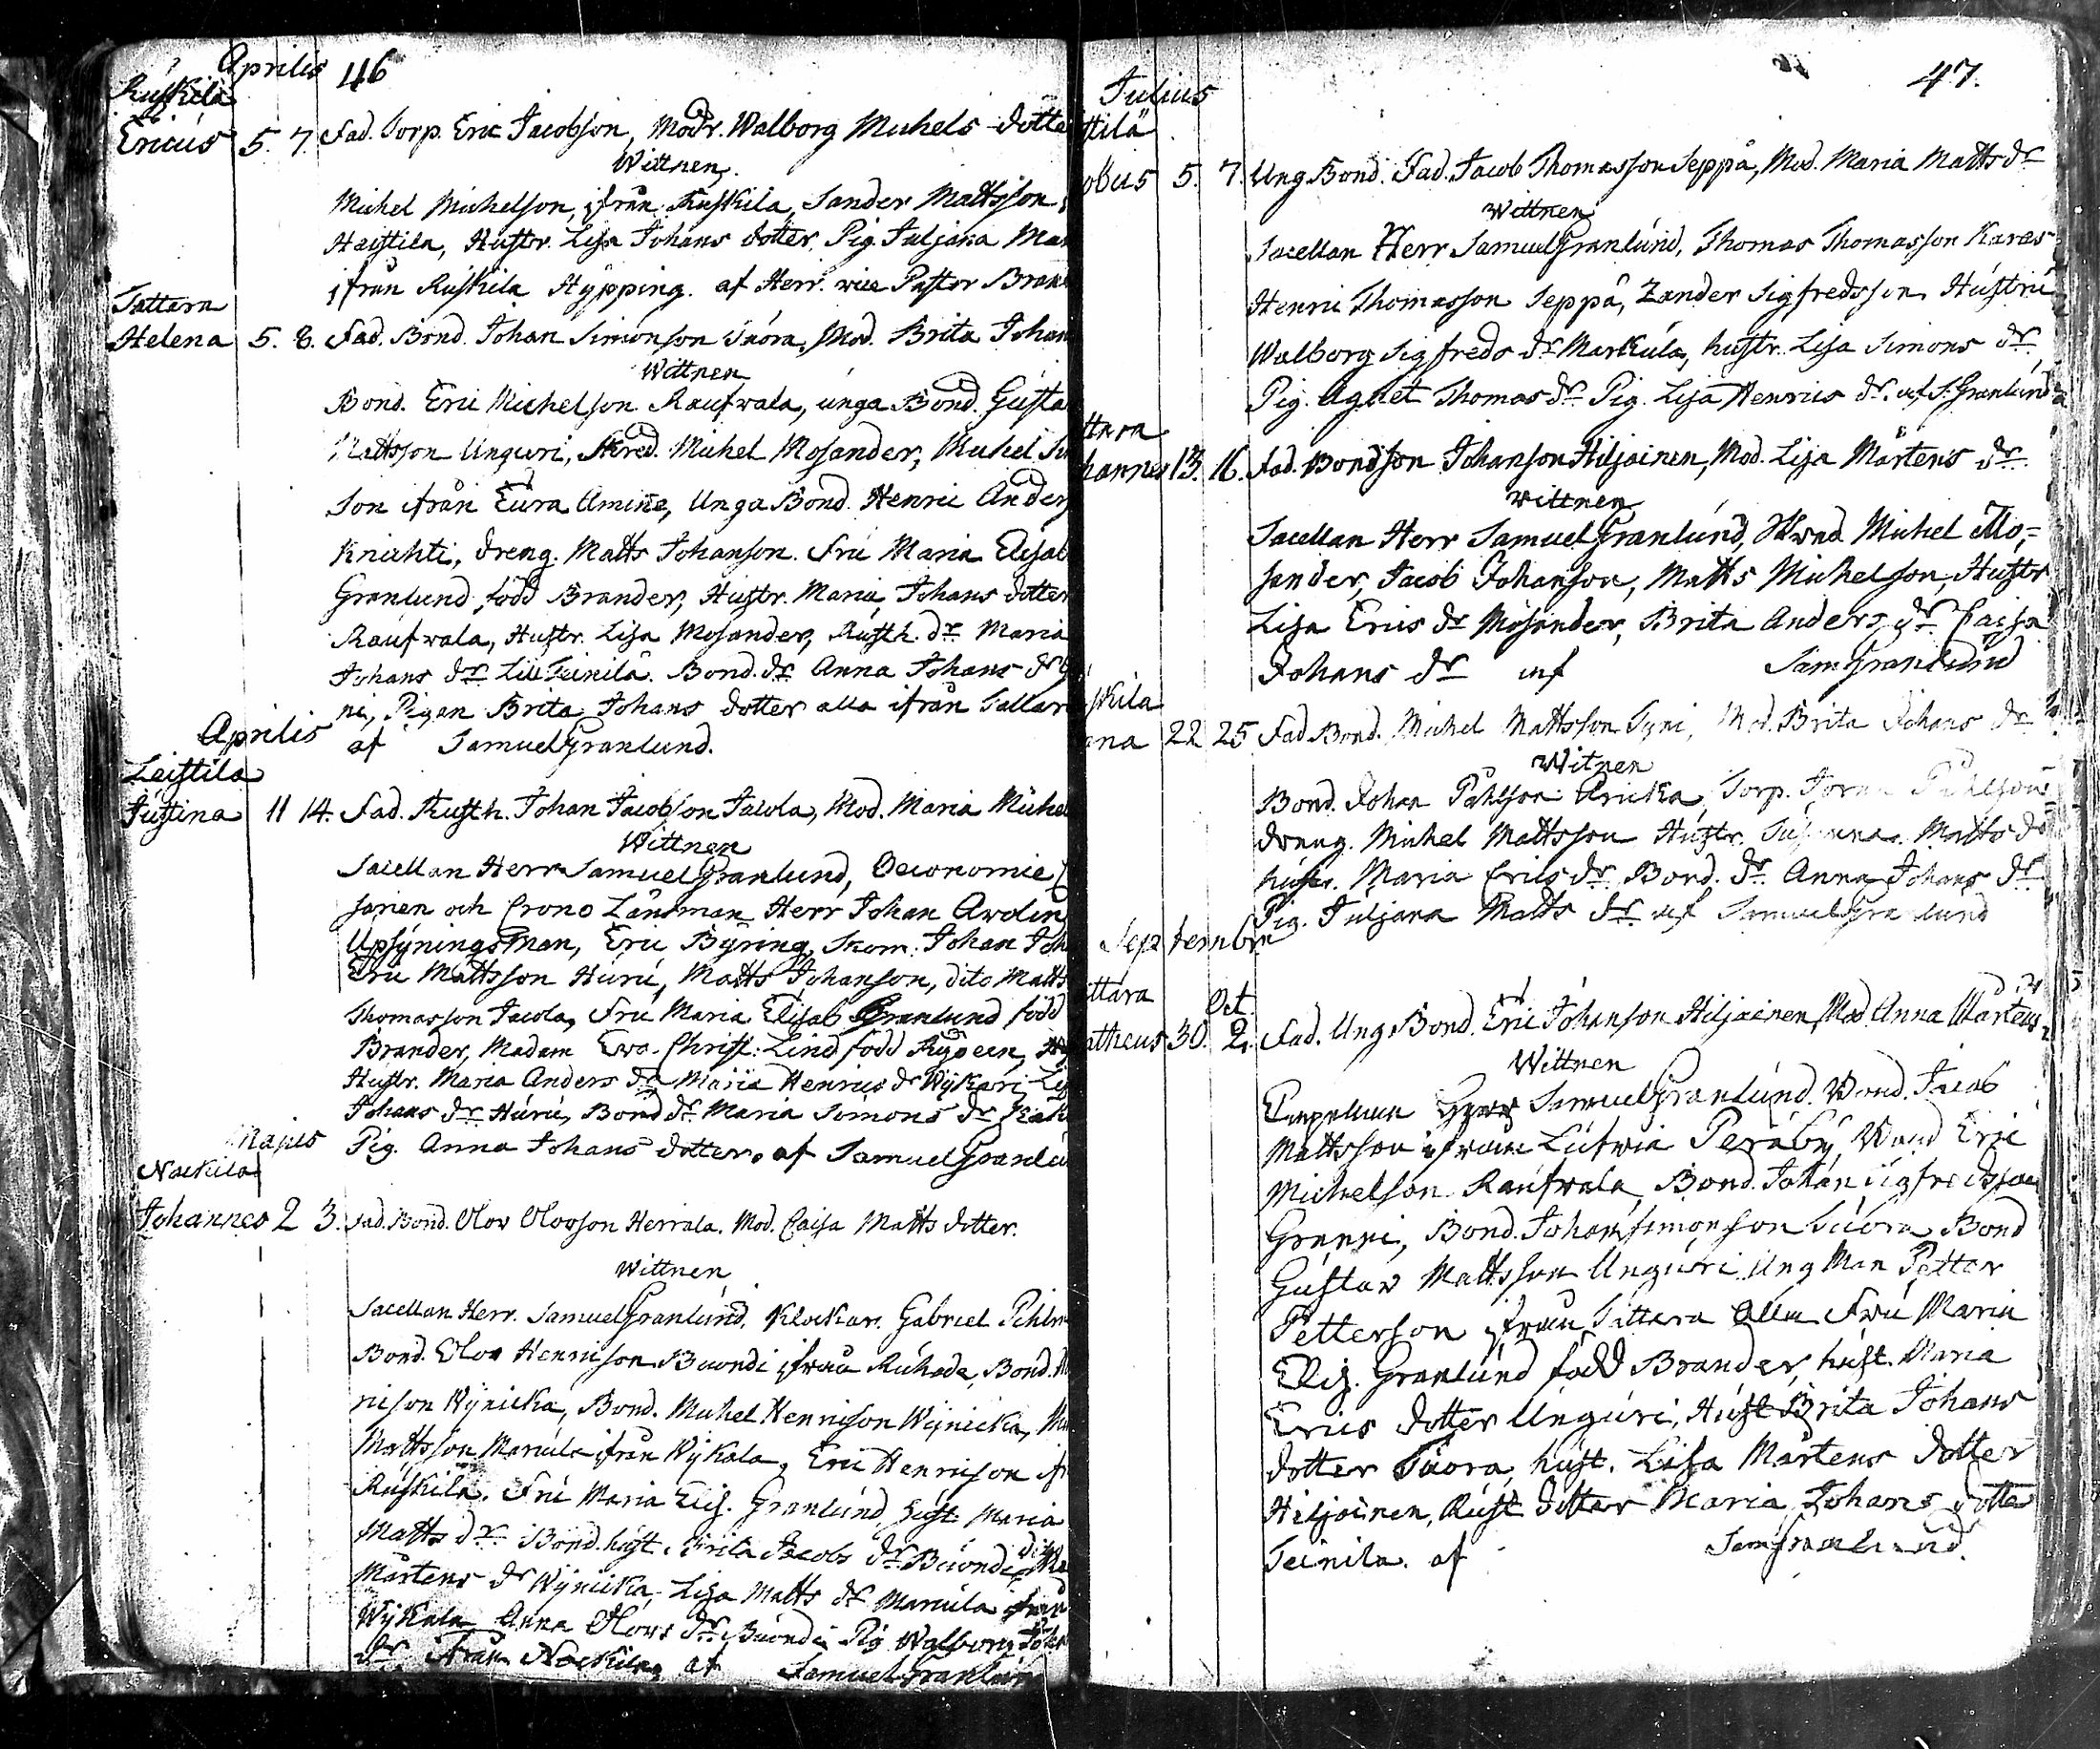 Aprilis 46
Ruskila
Ericus 5. 7. Fad. Sorp. Eric Jacobson, Modr. Walborg Michels dotte
Wittnen.
Michel Michelson, ifrån Ruskila, Sander Mattsson
Haistila, Hustr. Lisa Johans dotter, Pig. Juljana Ma
ifrån Ruskila Hypping. af Herr. vice Pastor Bran
Sattara
Helena 5. 8. Fad. Bond. Johan Simonson Suora, Mod. Brita Johan
Wittnen
Bond. Eric Michelson Raufwala, unga Bond. Gusta
Mattsson Unguri, Skred. Michel Mosander, Michel
Son ifrån Eura Åminne, Unga Bond. Henric Anders
Knichti, dreng. Matts Johanson. Fru Maria Elisab
Granlund född Brander, Hustr. Maria Johans dotter
Raufwala, Hustr. Lisa Mosander, Rusth. dr. Maria
Johans dr Seinilä. Bond. dr Anna Johans dr
ni, Pigan Brita Johans dotter alla ifrån Sattar
Aprilis af Samuel Granlund.
Leistila
Justina 11 14. Fad. Rusth. Johan Jacobson Jacola, Mod. Maria Michel
Wittnen
Sacellan Herr Samuel Granlund, Oeconomie
sarien och Crono Länsman Herr Johan Avolin
Upsynings Man, Eric Byring, Skom. Johan Joh
Eric Mattsson Huru, Matts Johanson, dito Matts
Thomasson Jacola, Fru Maria Elisab Granlund född
Brander, Madam Ewa Christ: Lind född
Hustr. Maria Anders dr Maria Henrics dr Wykari
Johans dr Huru, Bond dr Maria Simons dr
Majus Pig. Anna Johans dotter. af Samuel Granlu
Nackila
Johannes 2 3. Fad. Bond. Olov Olovson Herrala. Mod. Caisa Matts dotter.
Wittnen
Sacellan Herr. Samuel Granlund, Klockar. Gabriel Pihlm
Bond. Olov Henricson Buondi ifrån Ruhade, Bond.
ricson Wynicka, Bond. Michel Henricson Wynicka,
Mattsson Marcula ifrån Wykala, Eric Henricson if
Ruskila. Fru Maria Elis. Granlund, hust. Maria
Matts dr. Bond. hust. Brita Jacobs dr Buondi,
Mårtens dr Wynicka, Lisa Matts dr Marcula ifrån
Wykala Anna Olovs dr Buondi Pig Walborg Joh
dr. ifrån Nackila, af Samuel Granlun
47.
Julius
ttilä
obus 5. 7. Ung Bond. Fad. Jacob Thomasson Seppä, Mod. Maria Matts dr
Wittnen
Sacellan Herr Samuel Granlund, Thomas Thomasson Karas
Henric Thomasson Seppä, Zander Sigfredsson Hustru
Walborg Sigfreds dr Markula, hustr. Lisa Simons dr
Pig. Agnet Thomas dr Pig. Lisa Henrics dr. af S. Granlund
ttara
hannes 13. 16. Fad. Bondson Johanson Hiljainen, Mod. Lisa Mårtens dr
Wittnen
Sacellan Herr Samuel Granlund, Skred. Michel Mo-
sander, Jacob Johanson, Matts Michelson, Hustr
Lisa Erics dr Mosander, Brita Anders dr Caisa
Johans dr af Sam Granlund
skila
ana 22 25 Fad Bond. Michel Mattsson Syni, Mod. Brita Johans dr
Witnen
Bond. Johan Påhlson Aricka, Sorp. Påhlson
dreng. Michel Mattsson Hustr. Susanna Matts d
hustr. Maria Erics dr Bond. dr. Anna Johans dr
Pig. Juljana Matts dr af Samuel Granlund
Septembr
ttara Oct.
atheus 30. 2. Fad. Ung Bond. Eric Johanson Hiljainen, Mod. Anna Mårtens
Wittnen
Herr Samuel Granlund. Bond. Jacob
Mattsson ifrån Lutwia Peräby, Bond Eric
Michelson Raufwala, Bond. Johan Sigfredsson
Granni, Bond. Johan Simonson Suora, Bond
Gustav Mattsson Unguri Ung Man Petter
Petterson ifrån Sattara alla Fru Maria
Elis. Granlund född Brander, hust. Maria
Erics dotter Unguri, Hust Brita Johans
dotter Suora, hust. Lisa Mårtens dotter
Hiljainen, Rust dotter Maria Johans dotter
Seinila. af Sam Granlund.